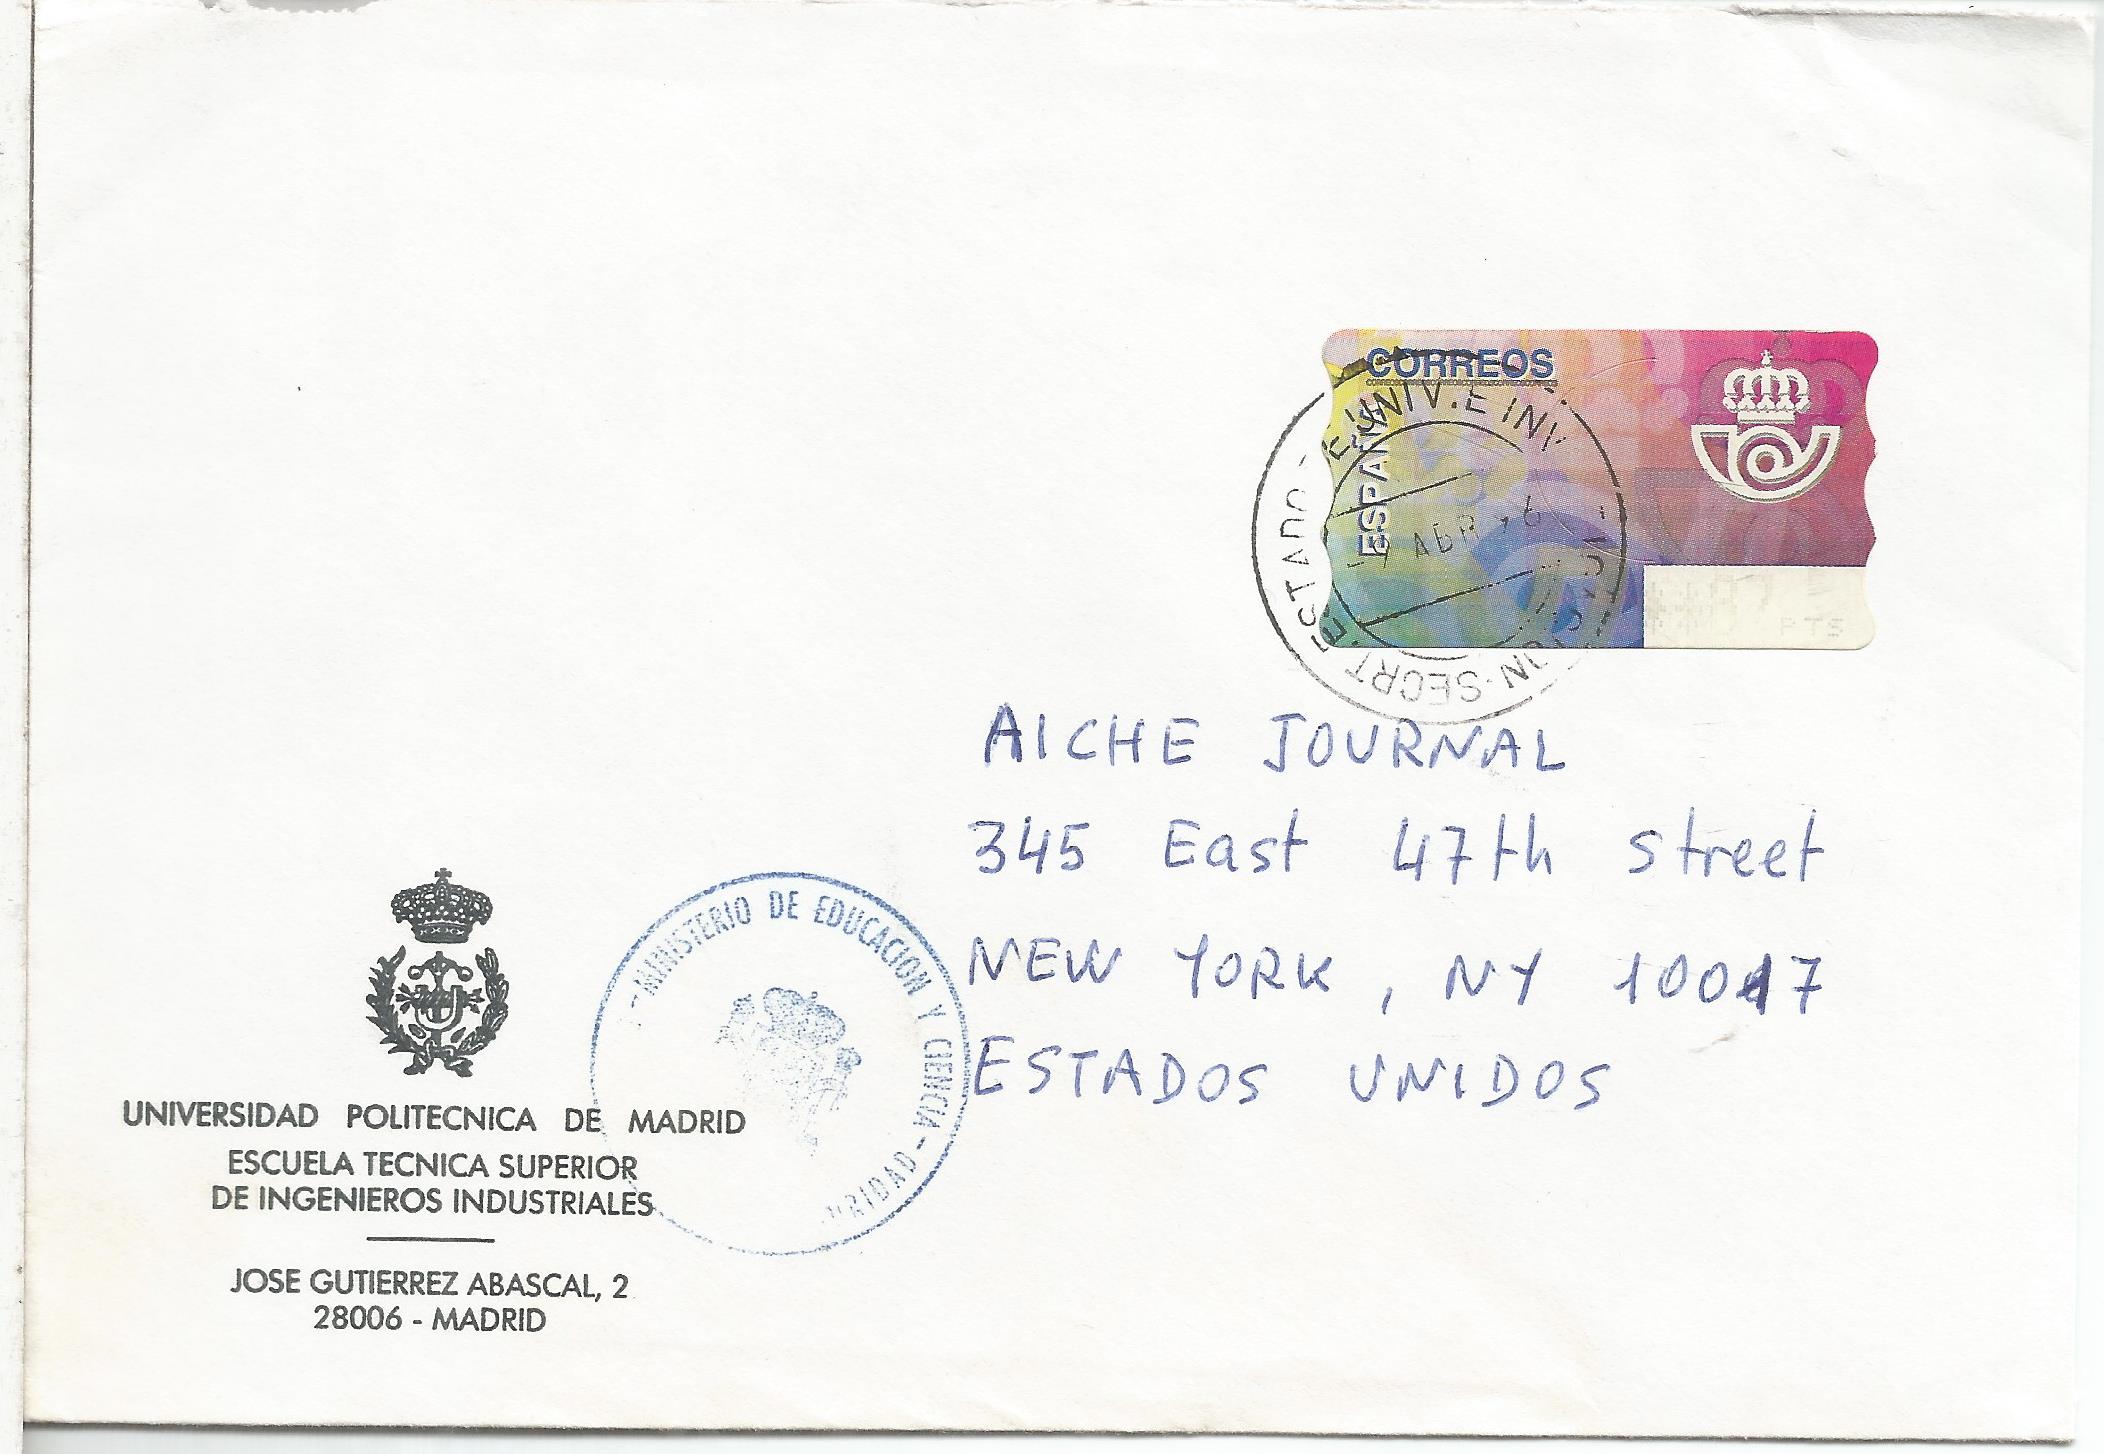 CORREOS
ESPAÑA
PTS
AICHE JOURNAL
345 East 47th street
NEW YORK, NY 10017
ESTADOS UNIDOS
- MINISTERIO DE EDUCACION Y CIENCIA -
UNIVERSIDAD POLITECNICA DE MADRID
ESCUELA TECNICA SUPERIOR
DE INGENIEROS INDUSTRIALES
JOSE GUTIERREZ ABASCAL, 2
28006 - MADRID